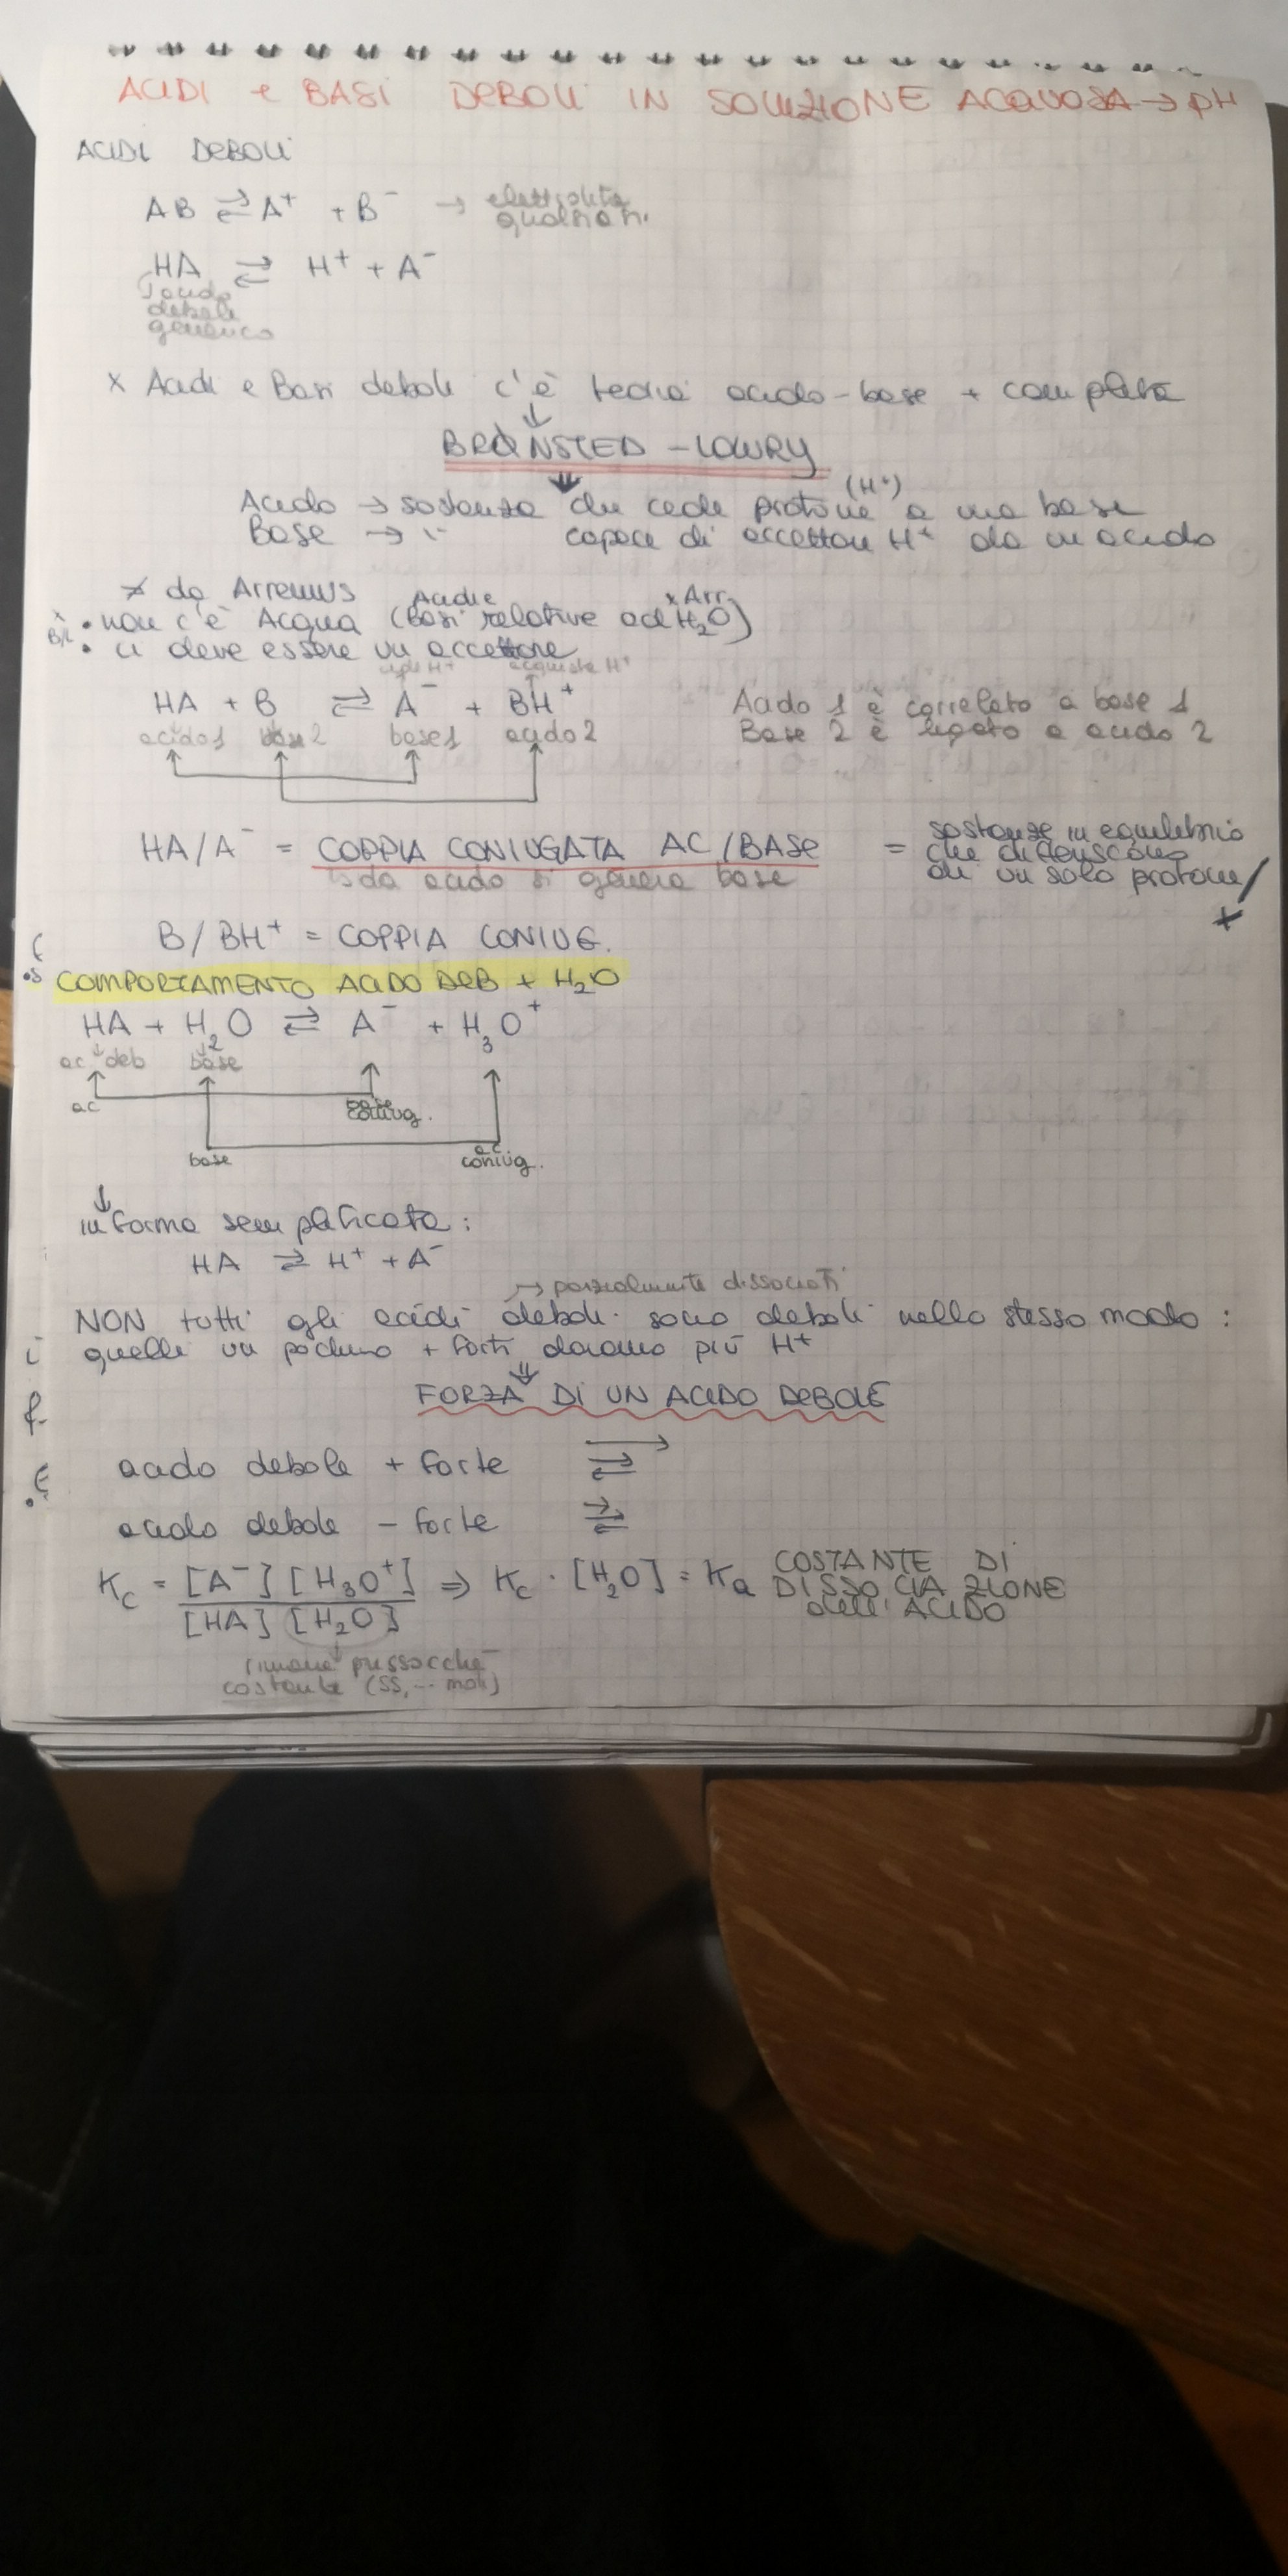 ACIDI e BASI DEBOLI IN SOLUZIONE ACQUOSA → pH
ACIDI DEBOLI
AB ⇌ A⁺ + B⁻ → elettrolita
qualsiasi
HA ⇌ H⁺ + A⁻
acido
debole
generico
x Acidi e Basi deboli c'è teoria acido-base + completa
↓
BRÖNSTED - LOWRY
⇓
(H⁺)
Acido → sostanza che cede protone a una base
Base → " capace di accettare H⁺ da un acido
≠ da Arrenius
Acidi e x Arr.
x B/L • non c'è Acqua (Basi relative ad H₂O)
• ci deve essere un accettore
cede H⁺ acquista H⁺
HA + B ⇌ A⁻ + BH⁺
acido1 base2 base1 acido2
Acido 1 è correlato a base 1
Base 2 è legato a acido 2
HA/A⁻ = COPPIA CONIUGATA AC/BASE = sostanze in equilibrio
che differiscono
di un solo protone/
+
da acido si genera base
B/BH⁺ = COPPIA CONIUG.
COMPORTAMENTO ACIDO DEB + H₂O
HA + H₂O ⇌ A⁻ + H₃O⁺
ac deb base
ac base coniug.
base ac coniug.
↓
in forma semplificata:
HA ⇌ H⁺ + A⁻
→ parzialmente dissociati
NON tutti gli acidi deboli sono deboli nello stesso modo:
quelli un pochino + forti daranno più H⁺
⇓
FORZA DI UN ACIDO DEBOLE
acido debole + forte ⇌
acido debole - forte ⇌
Kc = [A⁻][H₃O⁺] / [HA][H₂O] ⇒ Kc · [H₂O] = Ka COSTANTE DI
DISSOCIAZIONE
dell'ACIDO
rimane pressocché
costante (55,... mol)